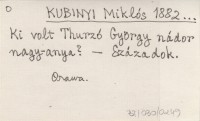 O
KUBINYI Miklós 1882...
Ki volt Thurzó György nádor
nagy-anya? — Századok.
Orawa.